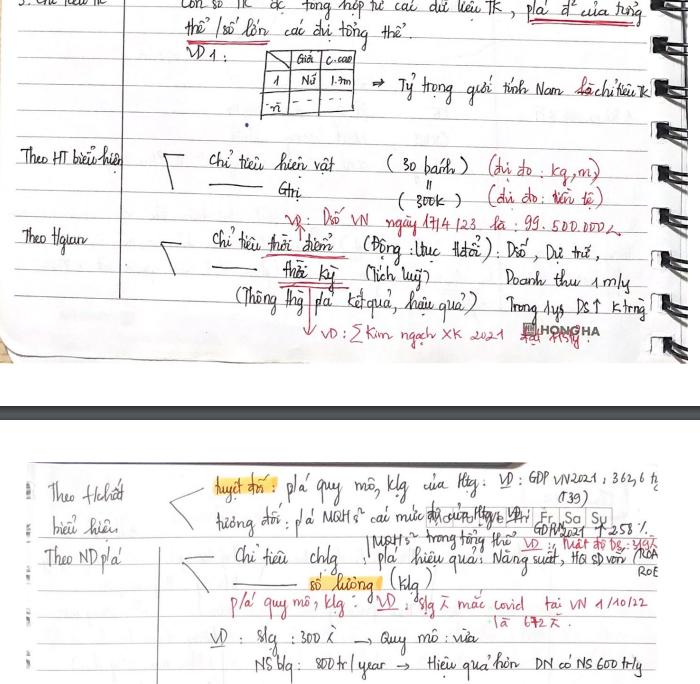 3. Chỉ tiêu TK
Con số TK đc tổng hợp từ các dữ liệu TK, p/á đ² của tổng
thể / số lớn các đvị tổng thể.
VD1:
Giới C.cao
1 Nữ 1.7m
...n - - - -
⇒ Tỷ trọng giới tính Nam là chỉ tiêu TK
Theo HT biểu hiện
Chỉ tiêu hiện vật (30 bánh) (đvị đo: kg, m,)
Gtrị (300k) (đvị đo: tiền tệ)
VD: Dsố VN ngày 17/4/23 là: 99.500.000
Theo tgian
Chỉ tiêu thời điểm (Động: liên tục thđổi): Dsố, Dự trữ,
thời kỳ (Tích luỹ) Doanh thu 1m/y
(Thông thg p/á kết quả, hậu quả) Trong 1ys DS↑ K trg
HONG HA
VD: ∑ Kim ngạch XK 2021
Theo t/chất
biểu hiện
tuyệt đối: p/á quy mô, klg của htg: VD: GDP VN2021: 362,6 tỷ
(T39)
tương đối: p/á MQHs² các mức độ của htg VD:
Mo Tu We Th Fr Sa Su
GDPVN2021 ↑ 2,58%
MQHs² trong tổng thể VD: Mật độ DS
Theo ND p/á
Chỉ tiêu chlg p/á hiệu quả: Năng suất, HQ SD vốn (ROA
ROE
số lượng (klg)
p/á quy mô, klg: VD: Slg λ mắc covid tại VN 1/10/22
là 672 λ.
VD: Slg: 300 λ → Quy mô: vừa
NSblq: 800tr/year → Hiệu quả hơn DN có NS 600tr/y